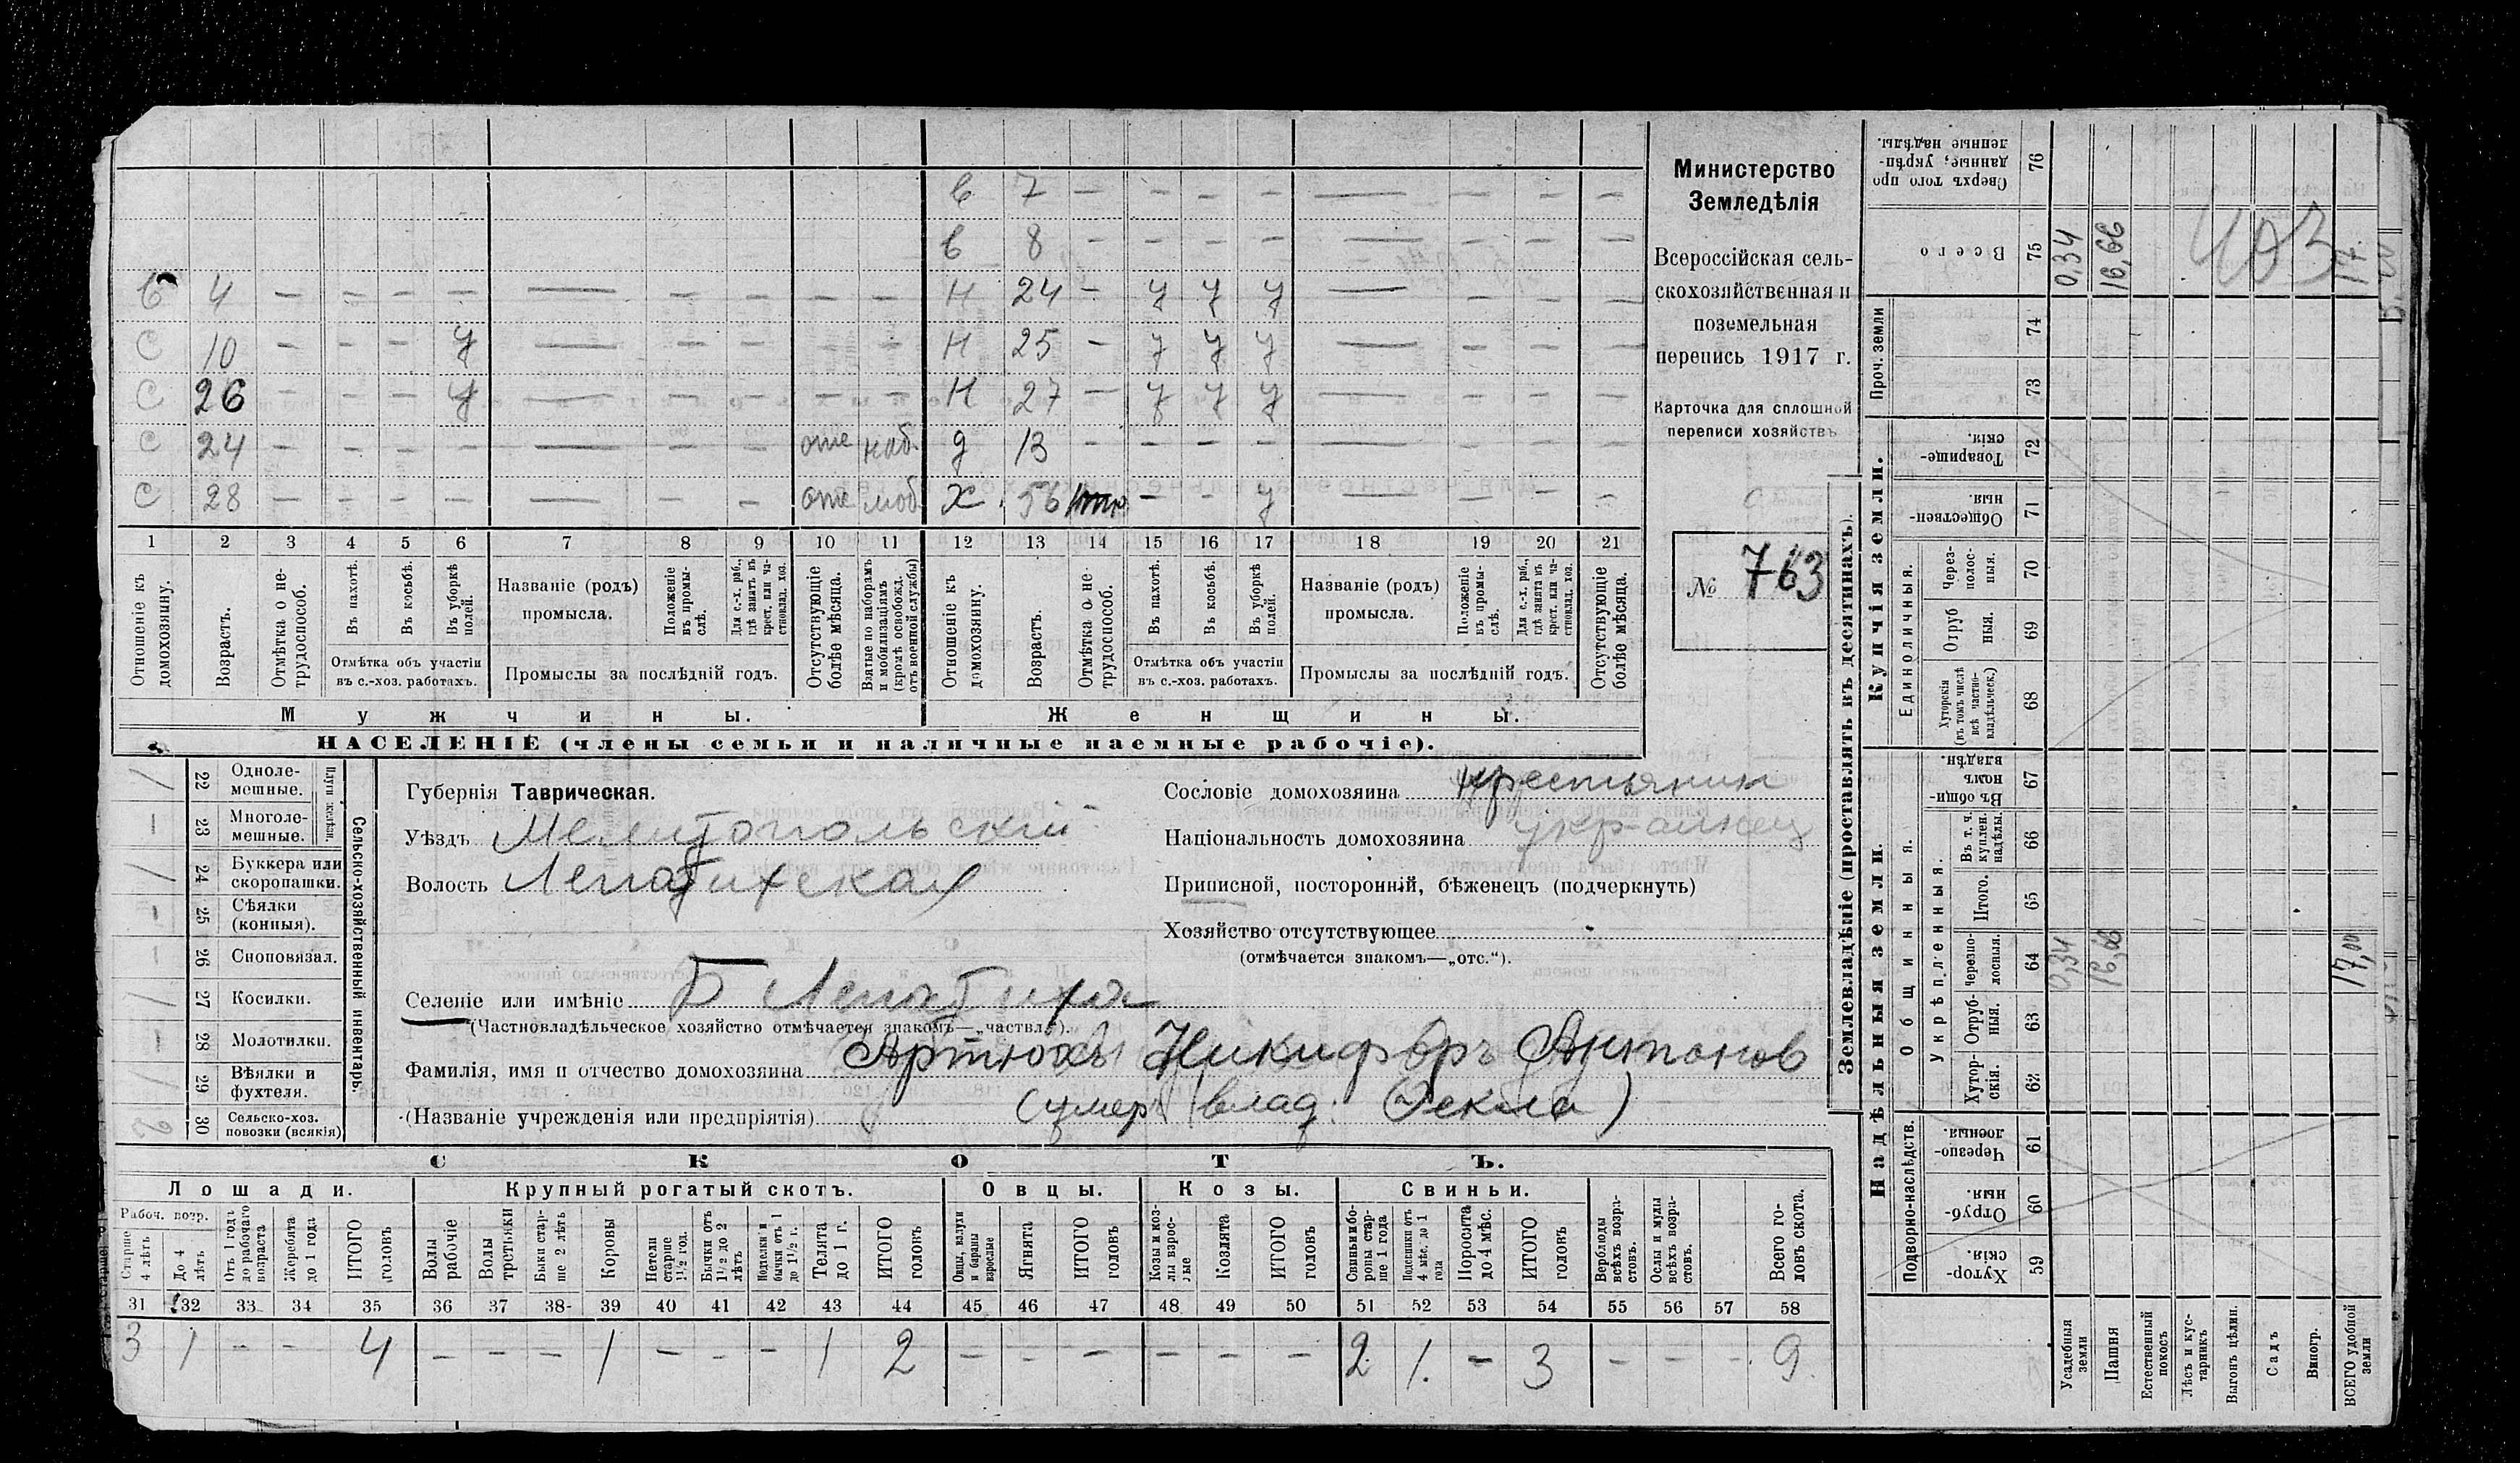 в 7 — — — — — — — —
в 8 — — — — — — — —
в 4 — — — — — — — — — Н 24 — у у у — — — —
С 10 — — — у — — — — — Н 25 — у у у — — — —
С 26 — — — у — — — — — Н 27 — у у у — — — —
С 24 — — — — — — — отс наб. д 13 — — — — — — — —
С 28 — — — — — — — отс моб Х. 56 — — у — — — —
1 2 3 4 5 6 7 8 9 10 11 12 13 14 15 16 17 18 19 20 21
Отношеніе къ домохозяину.
Возрастъ.
Отмѣтка о не-трудоспособ.
Въ пахотѣ.
Въ косьбѣ.
Въ уборкѣ полей.
Отмѣтка объ участіи въ с.-хоз. работахъ.
Названіе (родъ) промысла.
Положеніе въ промы-слѣ.
Для с.-х. раб., гдѣ занятъ въ крест. или ча-стновлад. хоз.
Промыслы за послѣдній годъ.
Отсутствующіе болѣе мѣсяца.
Взятые по наборамъ и мобилизаціямъ (кромѣ освобожд. отъ военной службы)
Отношеніе къ домохозяину.
Возрастъ.
Отмѣтка о не-трудоспособ.
Въ пахотѣ.
Въ косьбѣ.
Въ уборкѣ полей.
Отмѣтка объ участіи въ с.-хоз. работахъ.
Названіе (родъ) промысла.
Положеніе въ промы-слѣ.
Для с.-х. раб., гдѣ занятъ въ крест. или ча-стновлад. хоз.
Промыслы за послѣдній годъ.
Отсутствующіе болѣе мѣсяца.
Мужчины.
Женщины.
НАСЕЛЕНІЕ (члены семьи и наличные наемные рабочіе).
Министерство
Земледѣлія
Всероссійская сель-
скохозяйственная и
поземельная
перепись 1917 г.
Карточка для сплошной
переписи хозяйствъ
№ 763
Сельско-хозяйственный инвентарь.
22 Одноле-мешные. /
23 Многоле-мешные. —
24 Буккера или скоропашки. /
25 Сѣялки (конныя). —
26 Сноповязал. —
27 Косилки. /
28 Молотилки. —
29 Вѣялки и фухтеля. /
30 Сельско-хоз. повозки (всякія) 2
Губернія Таврическая.
Уѣздъ Мелитопольскій
Волость Лепатихская
Селеніе или имѣніе Б Лепатиха
(Частновладѣльческое хозяйство отмѣчается знакомъ—„частвл.").
Фамилія, имя и отчество домохозяина Артюхъ Никифоръ Антонов
(Названіе учрежденія или предпріятія) (умеръ влад. Текла)
Сословіе домохозяина крестьянин
Національность домохозяина украинец
Приписной, посторонній, бѣженецъ (подчеркнуть)
Хозяйство отсутствующее
(отмѣчается знакомъ—„отс.").
СКОТЪ.
Лошади. Крупный рогатый скотъ. Овцы. Козы. Свиньи.
Рабоч. возр.
Старше 4 лѣтъ
До 4 лѣтъ
Отъ 1 года до рабочаго возраста
Жеребята до 1 года
ИТОГО головъ
Волы рабочіе
Волы третьяки
Быки стар-ше 2 лѣтъ
Коровы
Нетели старше 1½ год.
Бычки отъ 1½ до 2 лѣтъ
Подтелки и бычки отъ 1 до 1½ г.
Телята до 1 г.
ИТОГО головъ
Овцы, валухи и бараны взрослые
Ягнята
ИТОГО головъ
Козы и коз-лы взрос-лые
Козлята
ИТОГО головъ
Свиньи и бо-ровы стар-ше 1 года
Подсвинки отъ 4 мѣс. до 1 года
Поросята до 4 мѣс.
ИТОГО головъ
Верблюды всѣхъ возра-стовъ.
Ослы и мулы всѣхъ возра-стовъ.
Всего го-ловъ скота.
31 32 33 34 35 36 37 38 39 40 41 42 43 44 45 46 47 48 49 50 51 52 53 54 55 56 57 58
3 1 — — 4 — — — 1 — — — 1 2 — — — — — — 2 1. — 3 — — — 9
Землевладѣніе (проставлять въ десятинахъ).
Надѣльныя земли.
Купчія земли.
Проч. земли
Подворно-наслѣдств.
Общинныя.
Укрѣпленныя.
Единоличныя.
59 Хутор-скія.
60 Отруб-ныя.
61 Черезпо-лосныя.
62 Хутор-скія.
63 Отруб-ныя.
64 Черезпо-лосныя. 0,34 16,66 17,00
65 Итого.
66 Въ т. ч. куплен. надѣлы.
67 Въ общи-номъ владѣн.
68 Хуторскія (въ томъ числѣ всѣ частно-владѣльческ.)
69 Отруб ныя.
70 Через-полос-ныя.
71 Обществен-ныя.
72 Товарище-скія.
73
74
75 Всего 0,34 16,66 17.
403
76 Сверхъ того про данные, укрѣп-ленные надѣлы.
Усадебныя земли
Пашня
Естественный покосъ
Лѣсъ и кус-тарникъ
Выгонъ цѣлин.
Садъ
Виногр.
ВСЕГО удобной земли